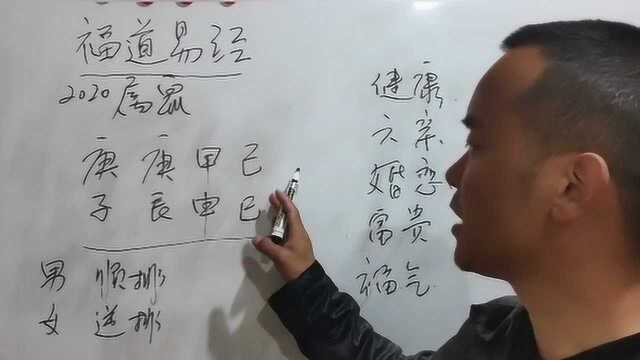 福道易经
2020属鼠
庚 庚 甲 己
子 辰 申 巳
男 顺排
女 逆排
健康
六亲
婚恋
富贵
福气